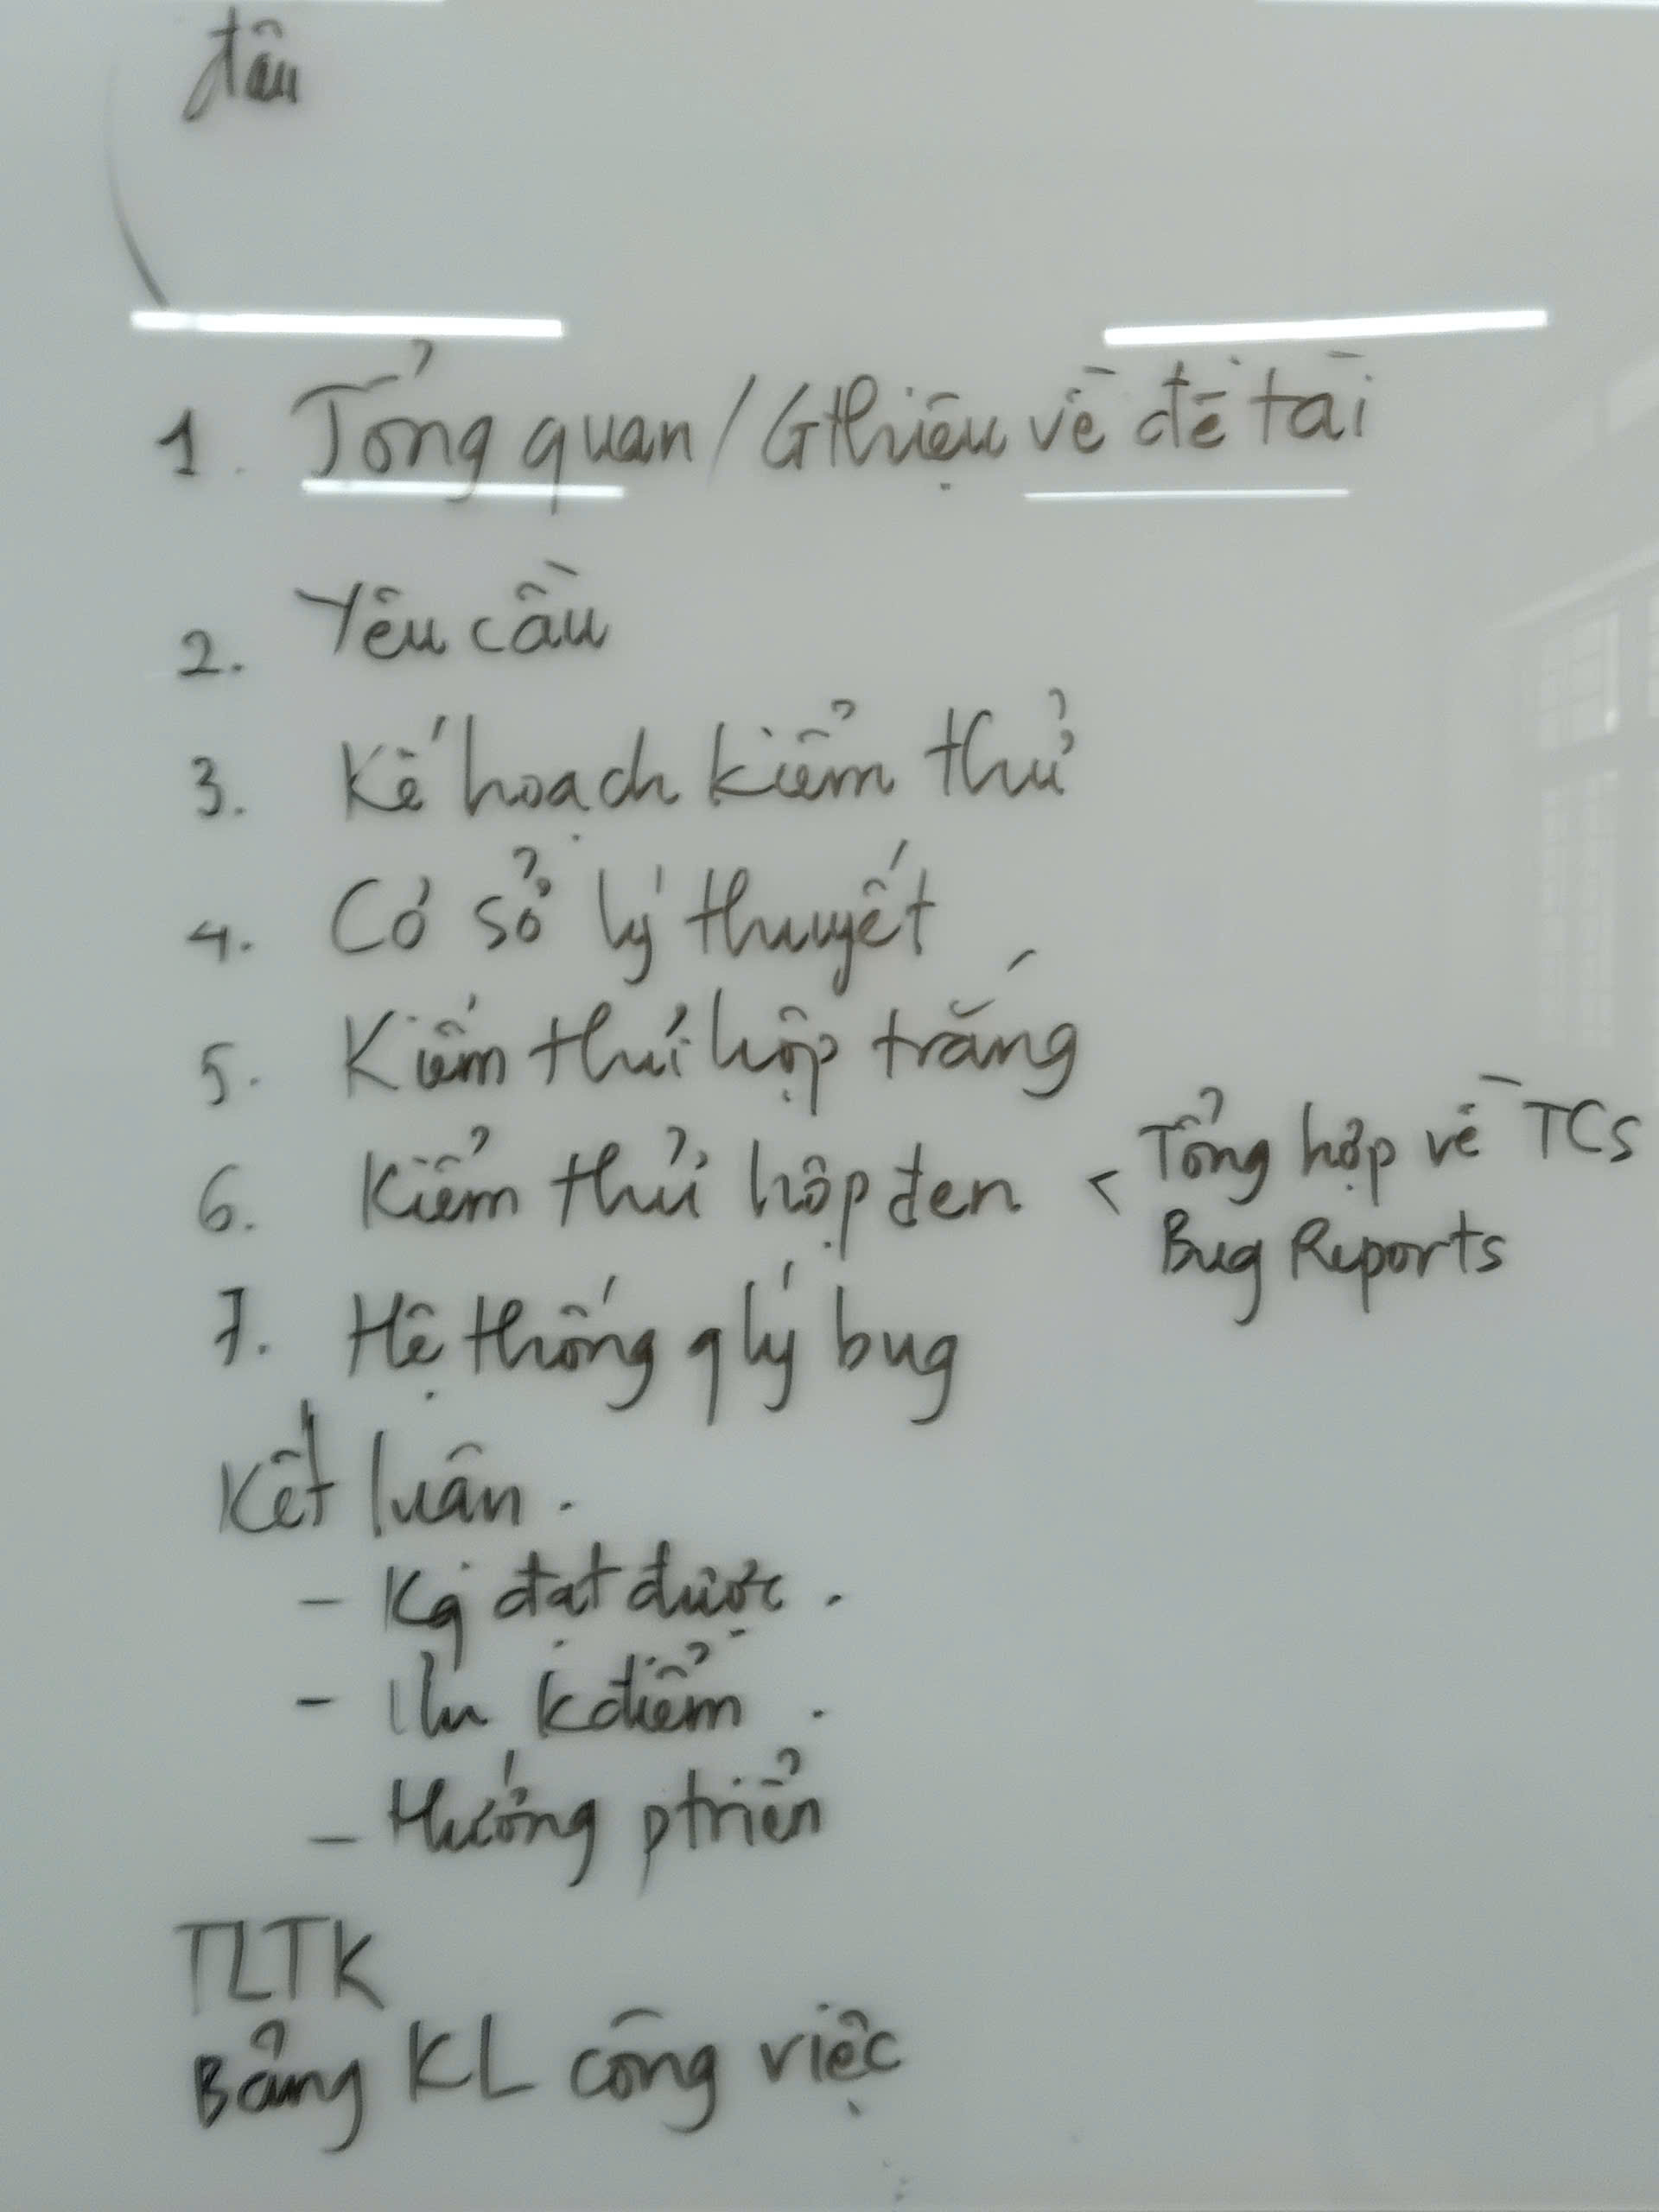 đầu
1. Tổng quan / Gthiệu về đề tài
2. Yêu cầu
3. Kế hoạch kiểm thử
4. Cơ sở lý thuyết
5. Kiểm thử hộp trắng
6. Kiểm thử hộp đen < Tổng hợp về TCs
Bug Reports
7. Hệ thống qlý bug
Kết luân.
- Kq đạt được.
- kđiểm.
- Hướng ptriển
TLTK
Bảng KL công việc